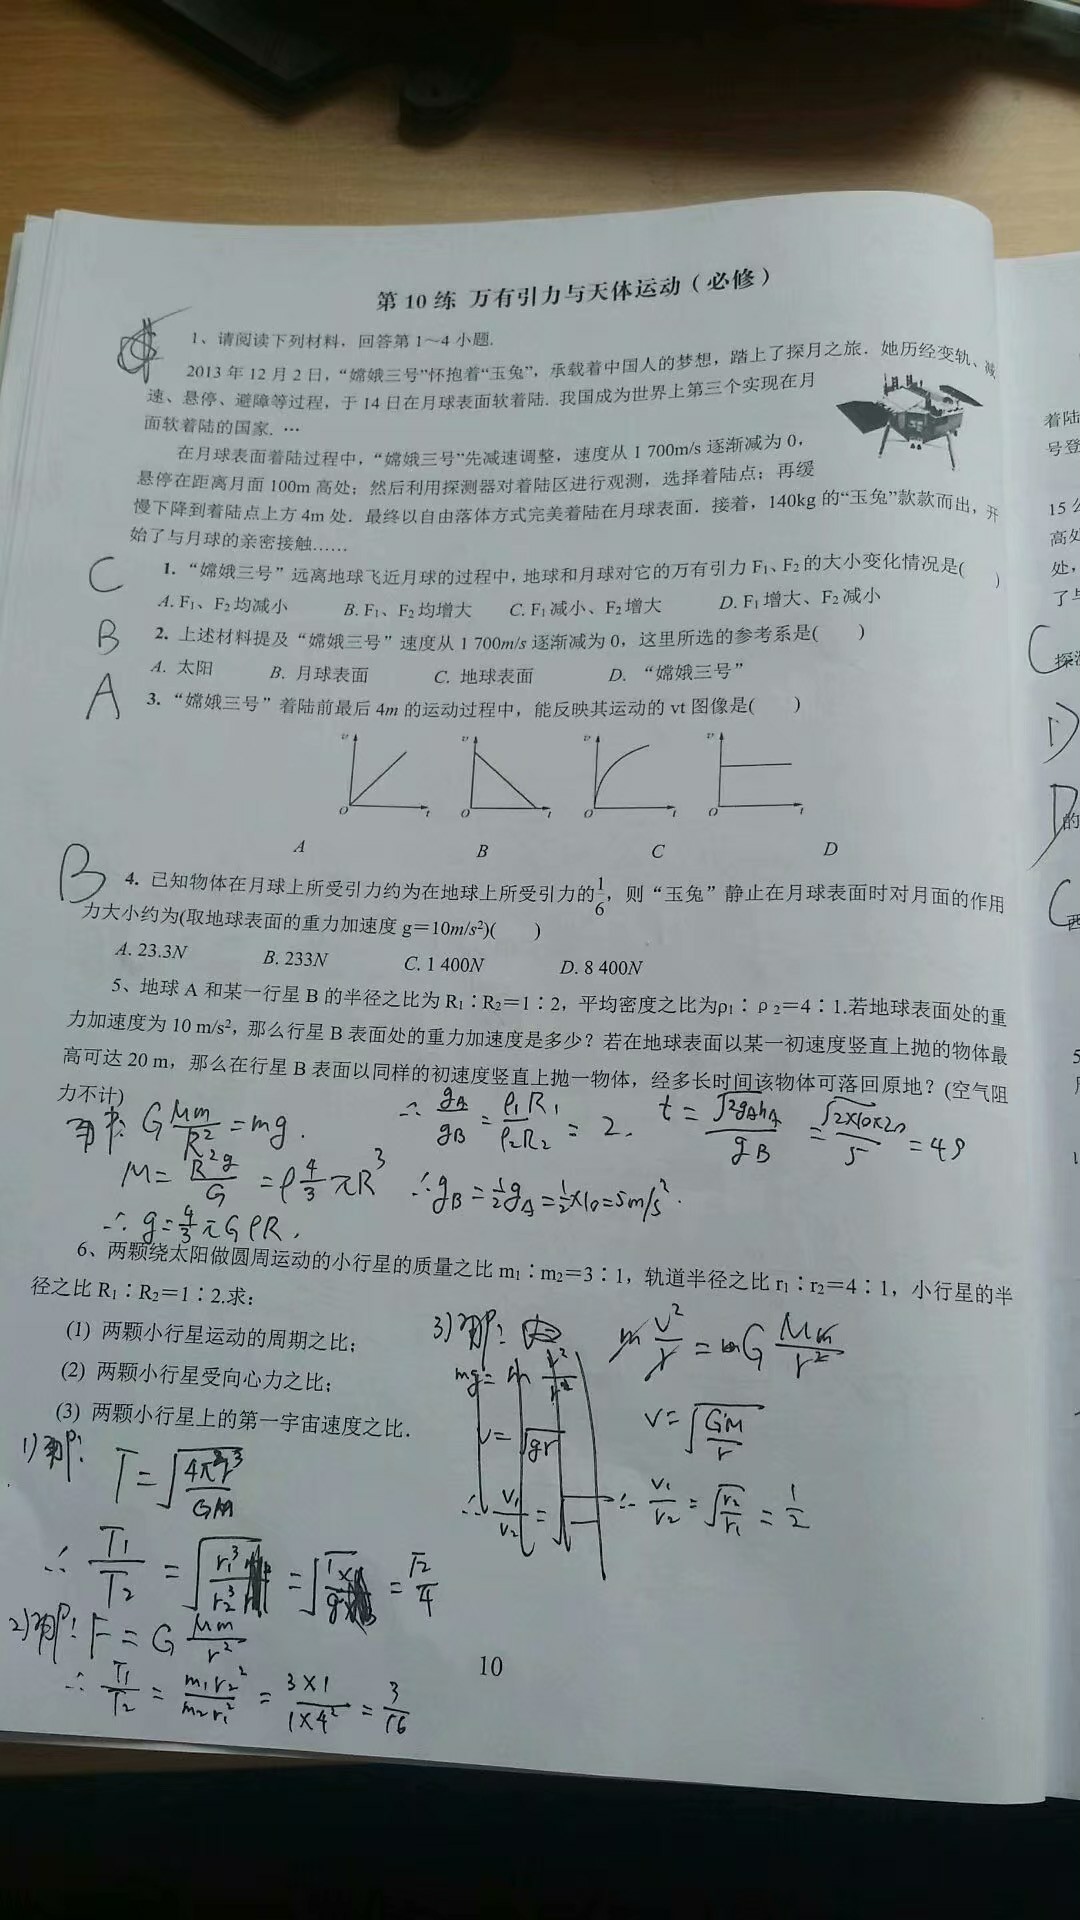 第10练 万有引力与天体运动(必修)
1、请阅读下列材料,回答第1~4小题.
2013年12月2日,“嫦娥三号”怀抱着“玉兔”,承载着中国人的梦想,踏上了探月之旅.她历经变轨、减
速、悬停、避障等过程,于14日在月球表面软着陆.我国成为世界上第三个实现在月
面软着陆的国家.…
在月球表面着陆过程中,“嫦娥三号”先减速调整,速度从1 700m/s逐渐减为0,
悬停在距离月面100m高处;然后利用探测器对着陆区进行观测,选择着陆点;再缓
慢下降到着陆点上方4m处.最终以自由落体方式完美着陆在月球表面.接着,140kg的“玉兔”款款而出,开
始了与月球的亲密接触……
C 1.“嫦娥三号”远离地球飞近月球的过程中,地球和月球对它的万有引力F₁、F₂的大小变化情况是( )
A.F₁、F₂均减小 B.F₁、F₂均增大 C.F₁减小、F₂增大 D.F₁增大、F₂减小
B 2.上述材料提及“嫦娥三号”速度从1 700m/s逐渐减为0,这里所选的参考系是( )
A.太阳 B.月球表面 C.地球表面 D.“嫦娥三号”
A 3.“嫦娥三号”着陆前最后4m的运动过程中,能反映其运动的vt图像是( )
v v v v
O t O t O t O t
A B C D
B 4.已知物体在月球上所受引力约为在地球上所受引力的1/6,则“玉兔”静止在月球表面时对月面的作用
力大小约为(取地球表面的重力加速度g=10m/s²)( )
A.23.3N B.233N C.1 400N D.8 400N
5、地球A和某一行星B的半径之比为R₁∶R₂=1∶2,平均密度之比为ρ₁∶ρ₂=4∶1.若地球表面处的重
力加速度为10 m/s²,那么行星B表面处的重力加速度是多少?若在地球表面以某一初速度竖直上抛的物体最
高可达20 m,那么在行星B表面以同样的初速度竖直上抛一物体,经多长时间该物体可落回原地?(空气阻
力不计)
G Mm/R² = mg.
M = R²g/G = ρ 4/3 πR³
∴ g = 4/3 πGρR.
∴ gA/gB = ρ₁R₁/ρ₂R₂ = 2.
∴ gB = 1/2 gA = 1/2×10 = 5m/s².
t = √2gAhA/gB = √2×10×20/5 = 4s
6、两颗绕太阳做圆周运动的小行星的质量之比m₁∶m₂=3∶1,轨道半径之比r₁∶r₂=4∶1,小行星的半
径之比R₁∶R₂=1∶2.求:
(1) 两颗小行星运动的周期之比;
(2) 两颗小行星受向心力之比;
(3) 两颗小行星上的第一宇宙速度之比.
1)
T = √4π²r³/GM
∴ T₁/T₂ = √r₁³/r₂³ = = √2/4
2) F = G Mm/r²
∴ T₁/T₂ = m₁r₂²/m₂r₁² = 3×1/1×4² = 3/16
3)
mg = m v²/r
v = √gr
∴ v₁/v₂ = √
m v²/r = G Mm/r²
v = √GM/r
∴ v₁/v₂ = √r₂/r₁ = 1/2
10
着陆
号登
15公
高处
处,
了与
C
探测
D
D
的
C
西